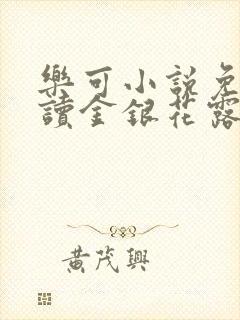 樂可小說免
讀金銀花露
黃茂興